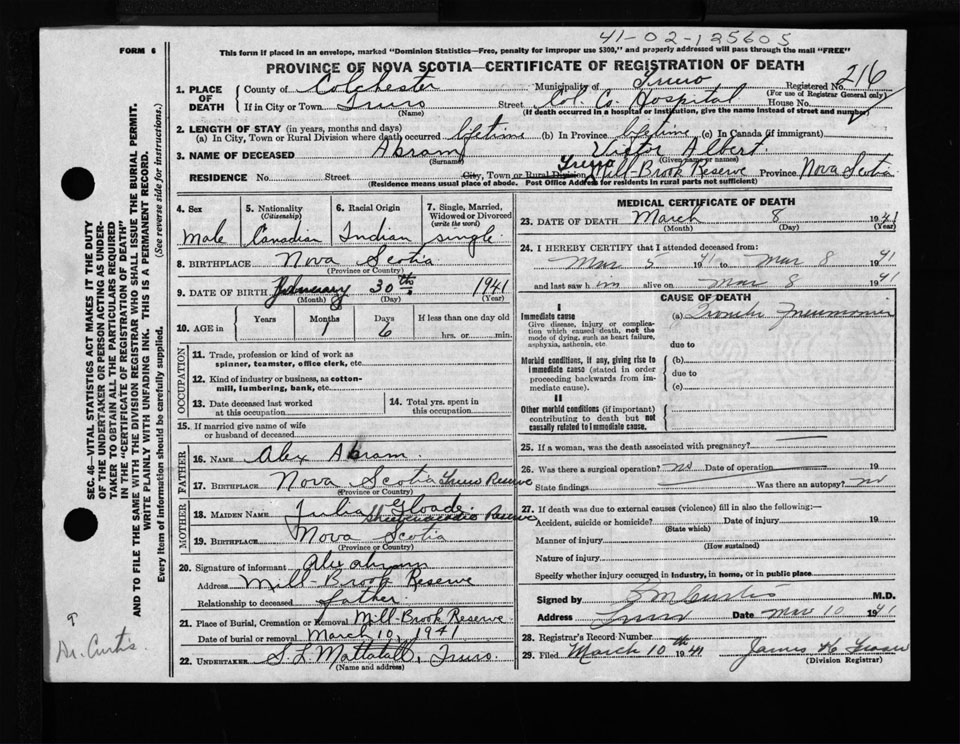 41-02-125605
FORM 6
This form if placed in an envelope, marked "Dominion Statistics—Free, penalty for improper use $300," and properly addressed will pass through the mail "FREE"
PROVINCE OF NOVA SCOTIA—CERTIFICATE OF REGISTRATION OF DEATH
1. PLACE OF DEATH
County of Colchester Municipality of Truro Registered No. 216
(For use of Registrar General only)
If in City or Town Truro Street Col. Co. Hospital House No.
(Name) (If death occurred in a hospital or institution, give the name instead of street and number)
2. LENGTH OF STAY (in years, months and days)
(a) In City, Town or Rural Division where death occurred lifetime (b) In Province lifetime (c) In Canada (if immigrant)
3. NAME OF DECEASED Abram Victor Albert.
(Surname) (Given name or names)
RESIDENCE No. Street City, Town or Rural Division Truro Mill-Brook Reserve Province Nova Scotia
(Residence means usual place of abode. Post Office Address for residents in rural parts not sufficient)
4. Sex
Male
5. Nationality
(Citizenship)
Canadian
6. Racial Origin
Indian
7. Single, Married, Widowed or Divorced
(write the word)
single
8. BIRTHPLACE Nova Scotia
(Province or Country)
9. DATE OF BIRTH 30th 1941
(Month) (Day) (Year)
10. AGE in
Years Months Days If less than one day old
1 6 hrs. or min.
OCCUPATION
11. Trade, profession or kind of work as spinner, teamster, office clerk, etc.
12. Kind of industry or business, as cotton-mill, lumbering, bank, etc.
13. Date deceased last worked at this occupation
14. Total yrs. spent in this occupation
15. If married give name of wife or husband of deceased
FATHER
16. NAME Alex Abram.
17. BIRTHPLACE Nova Scotia Truro Reserve
(Province or Country)
MOTHER
18. MAIDEN NAME Julia Gloade
Shubenacadie Reserve
19. BIRTHPLACE Nova Scotia
(Province or Country)
20. Signature of informant Alex Abram
Address Mill-Brook Reserve
Relationship to deceased father
21. Place of Burial, Cremation or Removal Mill-Brook Reserve
Date of burial or removal March 10, 1941
22. UNDERTAKER S. L. Mattatall, Truro.
(Name and address)
MEDICAL CERTIFICATE OF DEATH
23. DATE OF DEATH March 8 1941
(Month) (Day) (Year)
24. I HEREBY CERTIFY that I attended deceased from:
Mar 5 1941 to Mar 8 1941
and last saw him alive on Mar 8 1941
CAUSE OF DEATH
I
Immediate cause
Give disease, injury or complication which caused death, not the mode of dying, such as heart failure, asphyxia, asthenia, etc.
(a) Pneumonia
due to
Morbid conditions, if any, giving rise to immediate cause (stated in order proceeding backwards from immediate cause).
(b)
due to
(c)
II
Other morbid conditions (if important) contributing to death but not causally related to immediate cause.
25. If a woman, was the death associated with pregnancy?
26. Was there a surgical operation? no Date of operation 19
State findings Was there an autopsy? no
27. If death was due to external causes (violence) fill in also the following:—
Accident, suicide or homicide? Date of injury 19
(State which)
Manner of injury
(How sustained)
Nature of injury
Specify whether injury occurred in industry, in home, or in public place
Signed by Curtis M.D.
Address Truro Date Mar 10 1941
28. Registrar's Record Number
29. Filed March 10th 1941 James K. Fraser
(Division Registrar)
SEC. 46—VITAL STATISTICS ACT MAKES IT THE DUTY
OF THE UNDERTAKER OR PERSON ACTING AS UNDER-
TAKER TO OBTAIN ALL THE PARTICULARS REQUIRED
IN THE "CERTIFICATE OF REGISTRATION OF DEATH"
AND TO FILE THE SAME WITH THE DIVISION REGISTRAR WHO SHALL ISSUE THE BURIAL PERMIT.
WRITE PLAINLY WITH UNFADING INK. THIS IS A PERMANENT RECORD.
Every item of information should be carefully supplied. (See reverse side for instructions.)
Dr. Curtis.